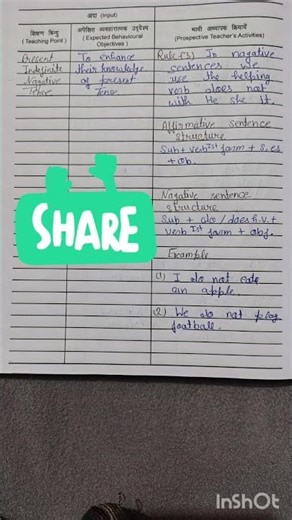 अदा (Input)
शिक्षण बिन्दु
( Teaching Point )
अपेक्षित व्यवहारात्मक उद्देश्य
( Expected Behavioural
Objectives )
भावी अध्यापक क्रियायें
(Prospective Teacher's Activities)
Present
Indefinite
Nagative
Tense
To enhance
their knowledge
of present
tense
Rule-(3) In nagative
sentences we
use the helping
verb does not
with He she it.
Affirmative sentence
structure
Sub + verb Ist form + s, es
+ ob.
Nagative sentence
structure
Sub + do / does h.v. +
verb Ist form + obj.
Example
(1) I do not eate
an apple.
(2) We do not play
football.
SHARE
InShOt